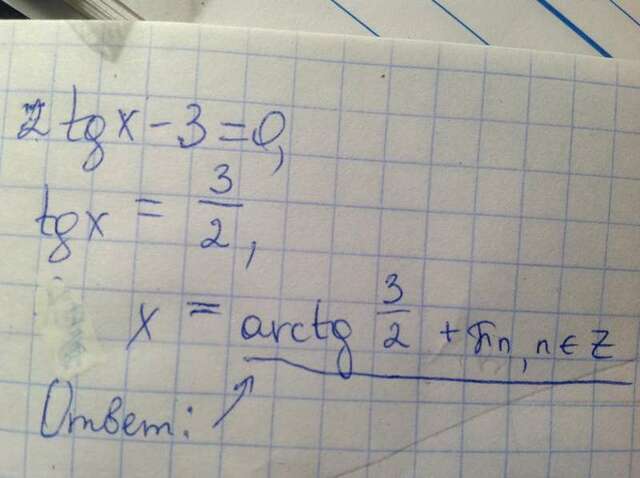 2 tg x - 3 = 0,
tg x = 3/2,
x = arctg 3/2 + πn, n ∈ Z
Ответ: